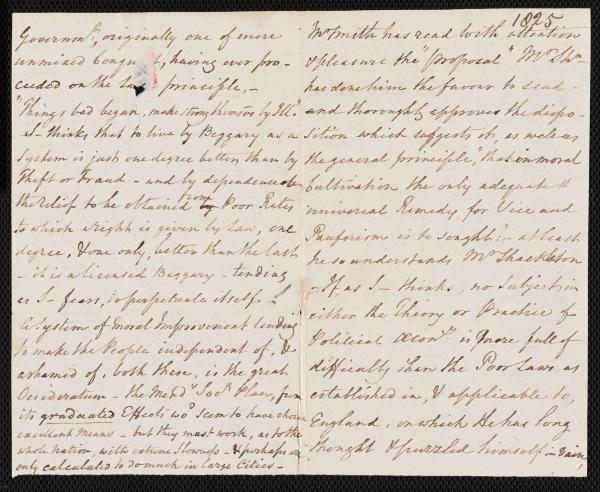 Governmt., originally one of mere
unmixed Conquest, having ever pro-
ceeded on the same principle,-
"Things bad begun, make strong themselves by Ill".
S- thinks that to live by Beggary as a
System is just one degree better than by
Theft or Fraud - and by dependence on
the relief to be obtained from Poor Rates
to which a right is given by Law, one
degree, & one only, better than the last
- it is a licensed Beggary - tending
as S- fears, to perpetuate itself -
A System of Moral Improvement tending
to make the People independent of, &
ashamed of, both these, is the great
Desideratum - the Mendy Socy Plan, from
its graduated Effects wd seem to have chosen
excellent Means - but they must work, as to the
whole nation, with extreme slowness - & perhaps are
only calculated to do much in large Cities -
1825
Mr Smith has read with attention
& pleasure the "proposal" Mr Sh-
has done him the favour to send -
and thoroughly approves the dispo-
sition which suggests it as well as
the general principle, "that in moral
Cultivation the only adequate &
universal Remedy for Vice and
Pauperism is to be sought":- at least
he so understands Mr Shackleton
- If, as S- thinks, no Subject in
either the Theory or Practice of
Political Œcony. is more full of
difficulty than the Poor Laws as
established in, & applicable to,
England, on which He has long
thought & puzzled himself in vain,